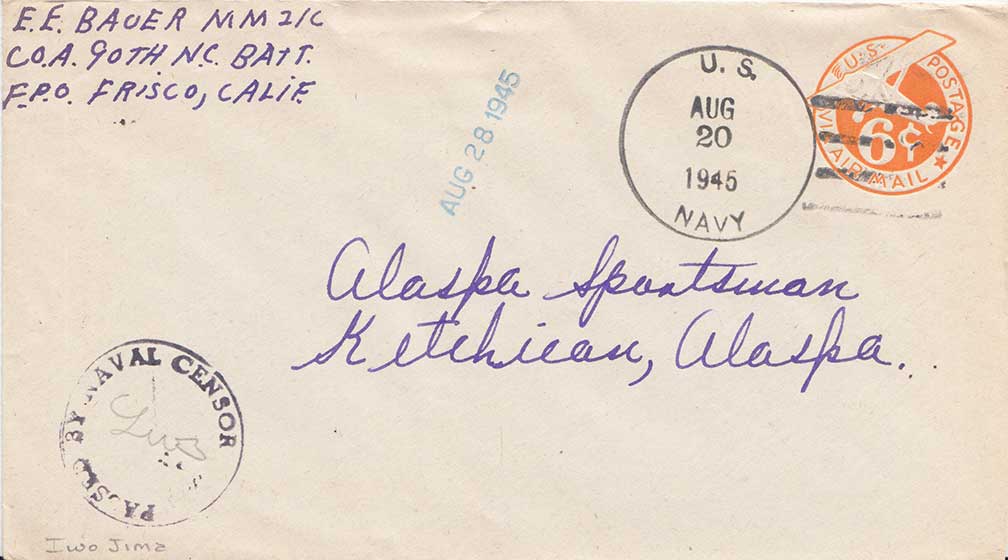 E.E. BAUER MM 2/C
CO.A. 90TH N.C. BATT.
F.P.O. FRISCO, CALIF.
AUG 28 1945
U. S.
AUG
20
1945
NAVY
U.S. POSTAGE
6¢
VIA AIR MAIL
Alaska Sportsman
Ketchican, Alaska.
PASSED BY NAVAL CENSOR
Iwo Jima